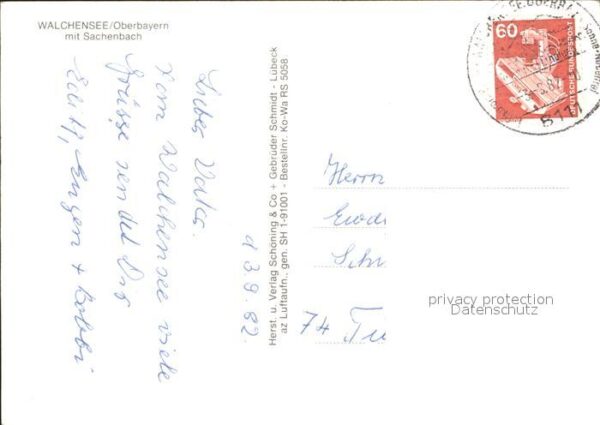 WALCHENSEE/Oberbayern
mit Sachenbach
d 3.9.82.
Lieber Vater.
Vom Walchensee viele
Grüsse sendet Dir
Edith, Eugen + Bobbi
Herst. u. Verlag Schöning & Co + Gebrüder Schmidt - Lübeck
az Luftaufn., gen. SH 1-91001 - Bestellnr. Ko-Wa RS 5058
60
DEUTSCHE BUNDESPOST
8111
Herrn
Ewa
Sch
74 Tü
privacy protection
Datenschutz